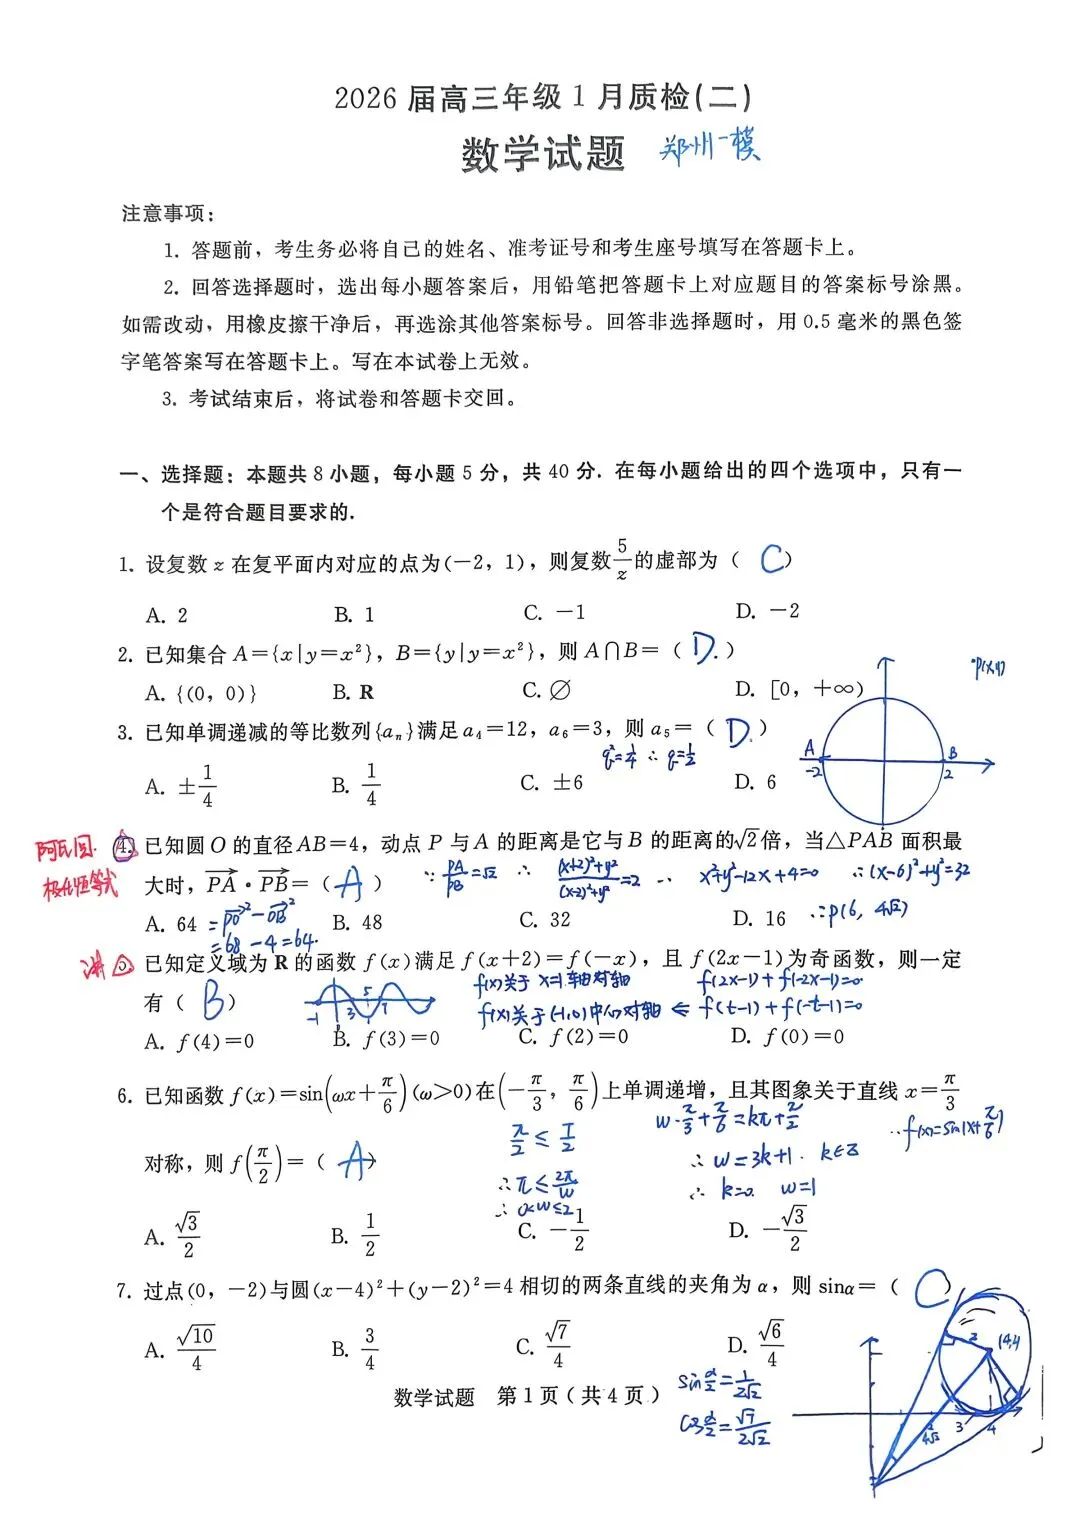 2026 届高三年级 1 月质检(二)
数学试题 郑州一模
注意事项：
1. 答题前，考生务必将自己的姓名、准考证号和考生座号填写在答题卡上。
2. 回答选择题时，选出每小题答案后，用铅笔把答题卡上对应题目的答案标号涂黑。
如需改动，用橡皮擦干净后，再选涂其他答案标号。回答非选择题时，用 0.5 毫米的黑色签
字笔答案写在答题卡上。写在本试卷上无效。
3. 考试结束后，将试卷和答题卡交回。
一、选择题：本题共 8 小题，每小题 5 分，共 40 分. 在每小题给出的四个选项中，只有一
个是符合题目要求的.
1. 设复数 z 在复平面内对应的点为(－2，1)，则复数 5/z 的虚部为（ C ）
A. 2 B. 1 C. －1 D. －2
2. 已知集合 A={x|y=x²}，B={y|y=x²}，则 A∩B=（ D. ）
A. {(0，0)} B. R C. ∅ D. [0，+∞)
P(x,y)
3. 已知单调递减的等比数列{aₙ}满足 a₄=12，a₆=3，则 a₅=（ D. ）
q²=1/4 ∴ q=1/2
A B
-2 2
A. ±1/4 B. 1/4 C. ±6 D. 6
阿氏圆.
4. 已知圆 O 的直径 AB=4，动点 P 与 A 的距离是它与 B 的距离的√2倍，当△PAB 面积最
极化恒等式
大时，PA→·PB→=（ A ） ∵ PA/PB=√2 ∴ ((x+2)²+y²)/((x-2)²+y²)=2 ∴ x²+y²-12x+4=0 ∴(x-6)²+y²=32
A. 64 B. 48 C. 32 D. 16 ∴P(6, 4√2)
=PO→²-OB→²
=68-4=64.
讲
5. 已知定义域为 R 的函数 f(x)满足 f(x+2)=f(－x)，且 f(2x－1)为奇函数，则一定
有（ B ） f(x)关于 x=1 轴对称 f(2x-1)+f(-2x-1)=0
-1 3 5 7
f(x)关于(-1,0)中心对称 ⇐ f(t-1)+f(-t-1)=0
A. f(4)=0 B. f(3)=0 C. f(2)=0 D. f(0)=0
6. 已知函数 f(x)=sin(ωx+π/6)(ω>0)在(－π/3，π/6)上单调递增，且其图象关于直线 x=π/3
w·π/3+π/6=kπ+π/2
∴f(x)=sin(x+π/6)
对称，则 f(π/2)=（ A ）
π/2 ≤ T/2
∴ w=3k+1. k∈Z
∴π≤2π/w
∴ k=0. w=1
∴ 0<w≤2
A. √3/2 B. 1/2 C. －1/2 D. －√3/2
7. 过点(0，－2)与圆(x－4)²+(y－2)²=4 相切的两条直线的夹角为 α，则 sinα=（ C ）
A. √10/4 B. 3/4 C. √7/4 D. √6/4
2
sin α/2=1/2√2
cos α/2=√7/2√2
4√2
3
4
数学试题 第 1 页（共 4 页）